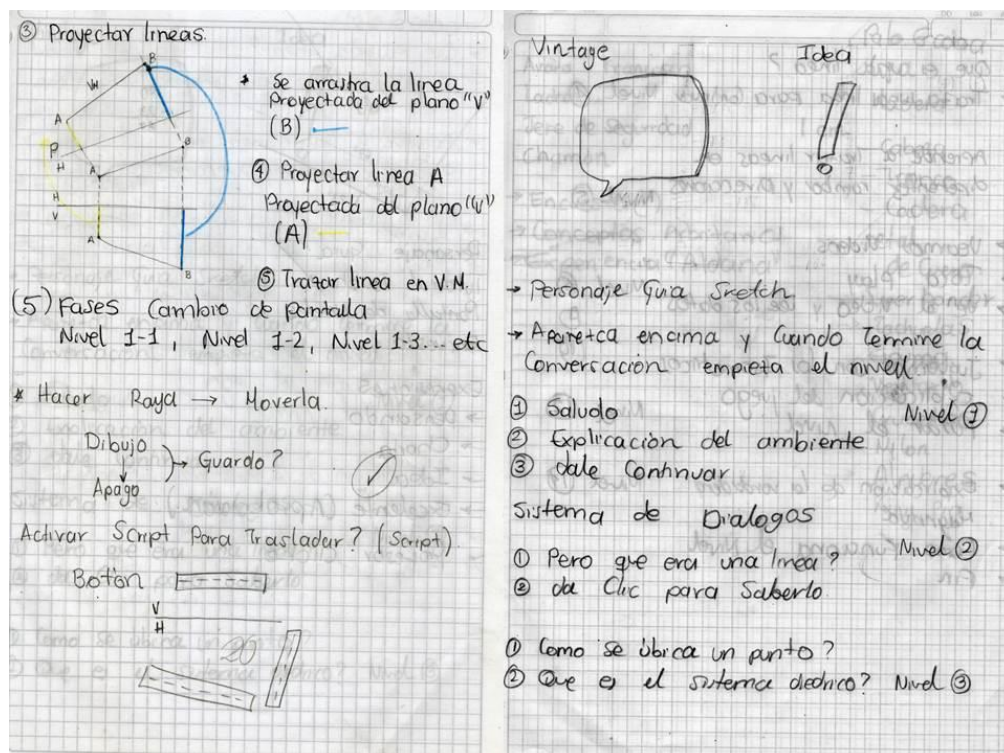 ③ Proyectar lineas.
B
VM
A
P
H
A
B
H
V
A
B
* Se arrastra la linea
Proyectada del plano "V"
(B)
④ Proyectar linea A
Proyectada del plano "V"
(A)
⑤ Trazar linea en V.M.
(5) Fases Cambio de Pantalla
Nivel 1-1, Nivel 1-2, Nivel 1-3... etc
* Hacer Raya → Moverla.
Dibujo
↓ → Guardo?
Apago
Activar Script Para Trasladar? (Script)
Botón
V
H
20
Vintage Idea
→ Personaje Guia Sketch
→ Aparezca encima y Cuando Termine la
Conversación empieza el nivel
① Saludo Nivel ①
② Explicación del ambiente
③ dale Continuar
Sistema de Dialogos
Nivel ②
① Pero que era una linea?
② da Clic para Saberlo
① Como se úbica un punto?
② Que es el sistema diedrico? Nivel ③